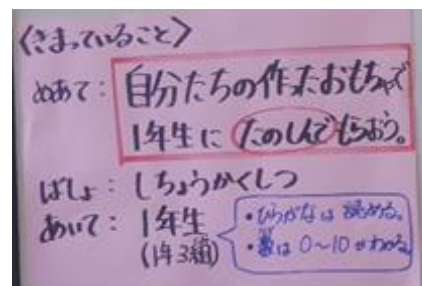 〈きまっていること〉
めあて： 自分たちの作ったおもちゃで
1年生に たのしんで もらおう。
ばしょ： しちょうかくしつ
あいて： 1年生
(1年3組)
・ひらがなは 読める。
・数は 0〜10がわかる。